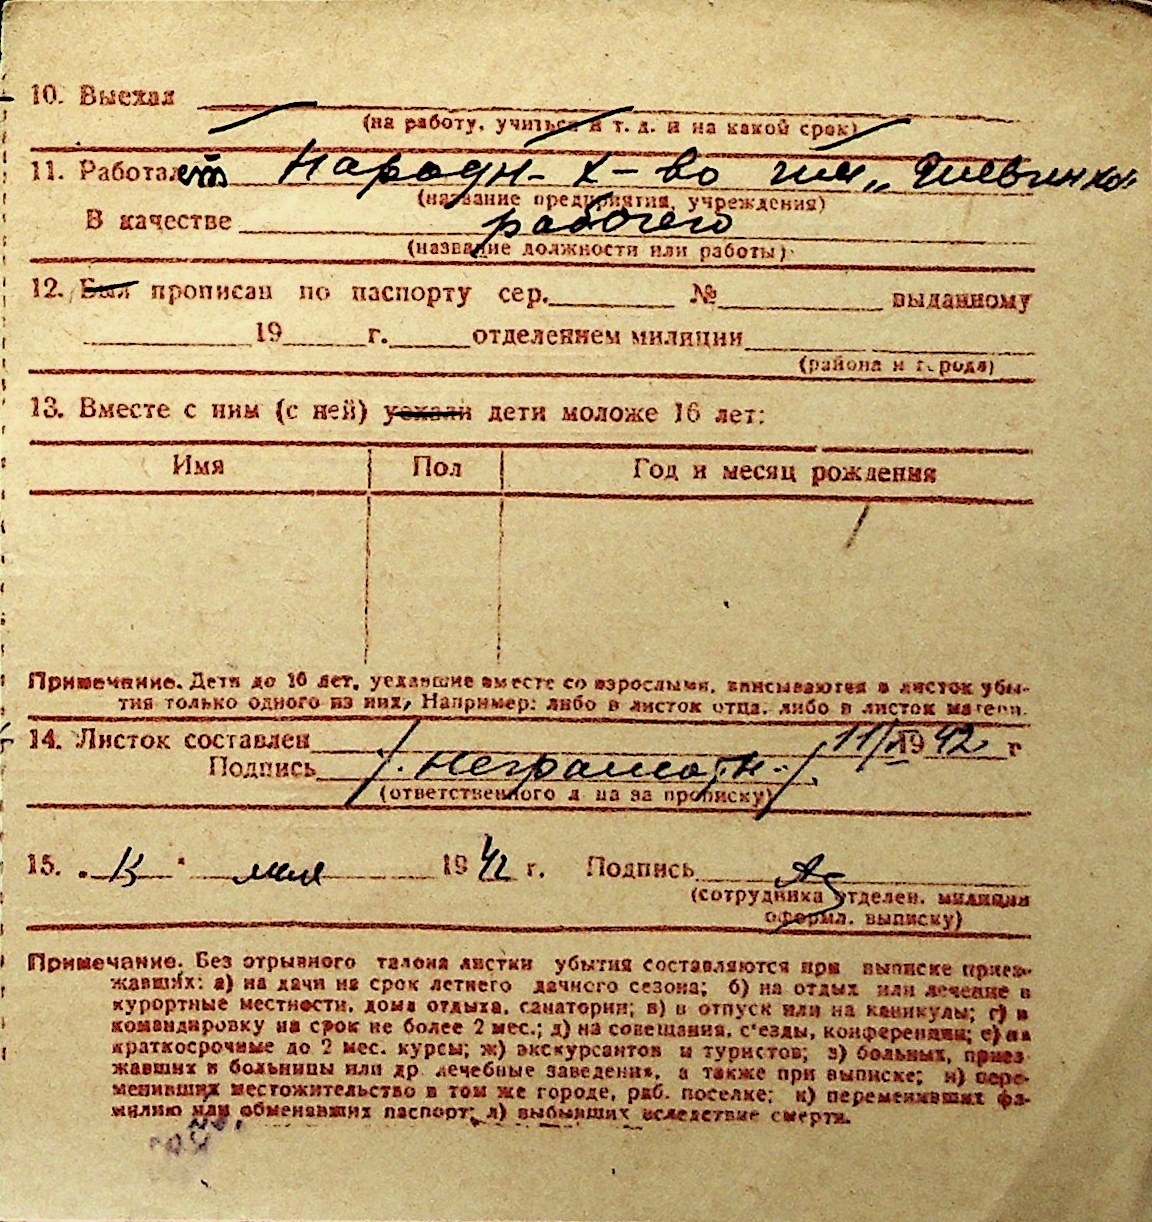 10. Выехал
(на работу, учиться и т. д. и на какой срок)
11. Работает Народн- х-во им „Шевченко"
(название предприятия, учреждения)
В качестве рабочего
(название должности или работы)
12. Был прописан по паспорту сер. № выданному
19 г. отделением милиции
(района и города)
13. Вместе с ним (с ней) уехали дети моложе 16 лет:
Имя Пол Год и месяц рождения
Примечание. Дети до 16 лет, уехавшие вместе со взрослыми, вписываются в листок убы-
тия только одного из них, Например: либо в листок отца, либо в листок матери.
14. Листок составлен 11/ 1942 г
Подпись /. неграмотн. /.
(ответственного л ца за прописку)
15. мая 1942 г. Подпись
(сотрудника отделен. милиции
оформл. выписку)
Примечание. Без отрывного талона листки убытия составляются при выписке приез-
жавших: а) на дачи на срок летнего дачного сезона; б) на отдых или лечение в
курортные местности, дома отдыха, санатории; в) в отпуск или на каникулы; г) в
командировку на срок не более 2 мес.; д) на совещания, с'езды, конференции; е) на
краткосрочные до 2 мес. курсы; ж) экскурсантов и туристов; з) больных, приез
жавших в больницы или др лечебные заведения, а также при выписке; и) пере-
менивших местожительство в том же городе, раб. поселке; к) переменивших фа-
милию или обменявших паспорт; л) выбывших вследствие смерти.